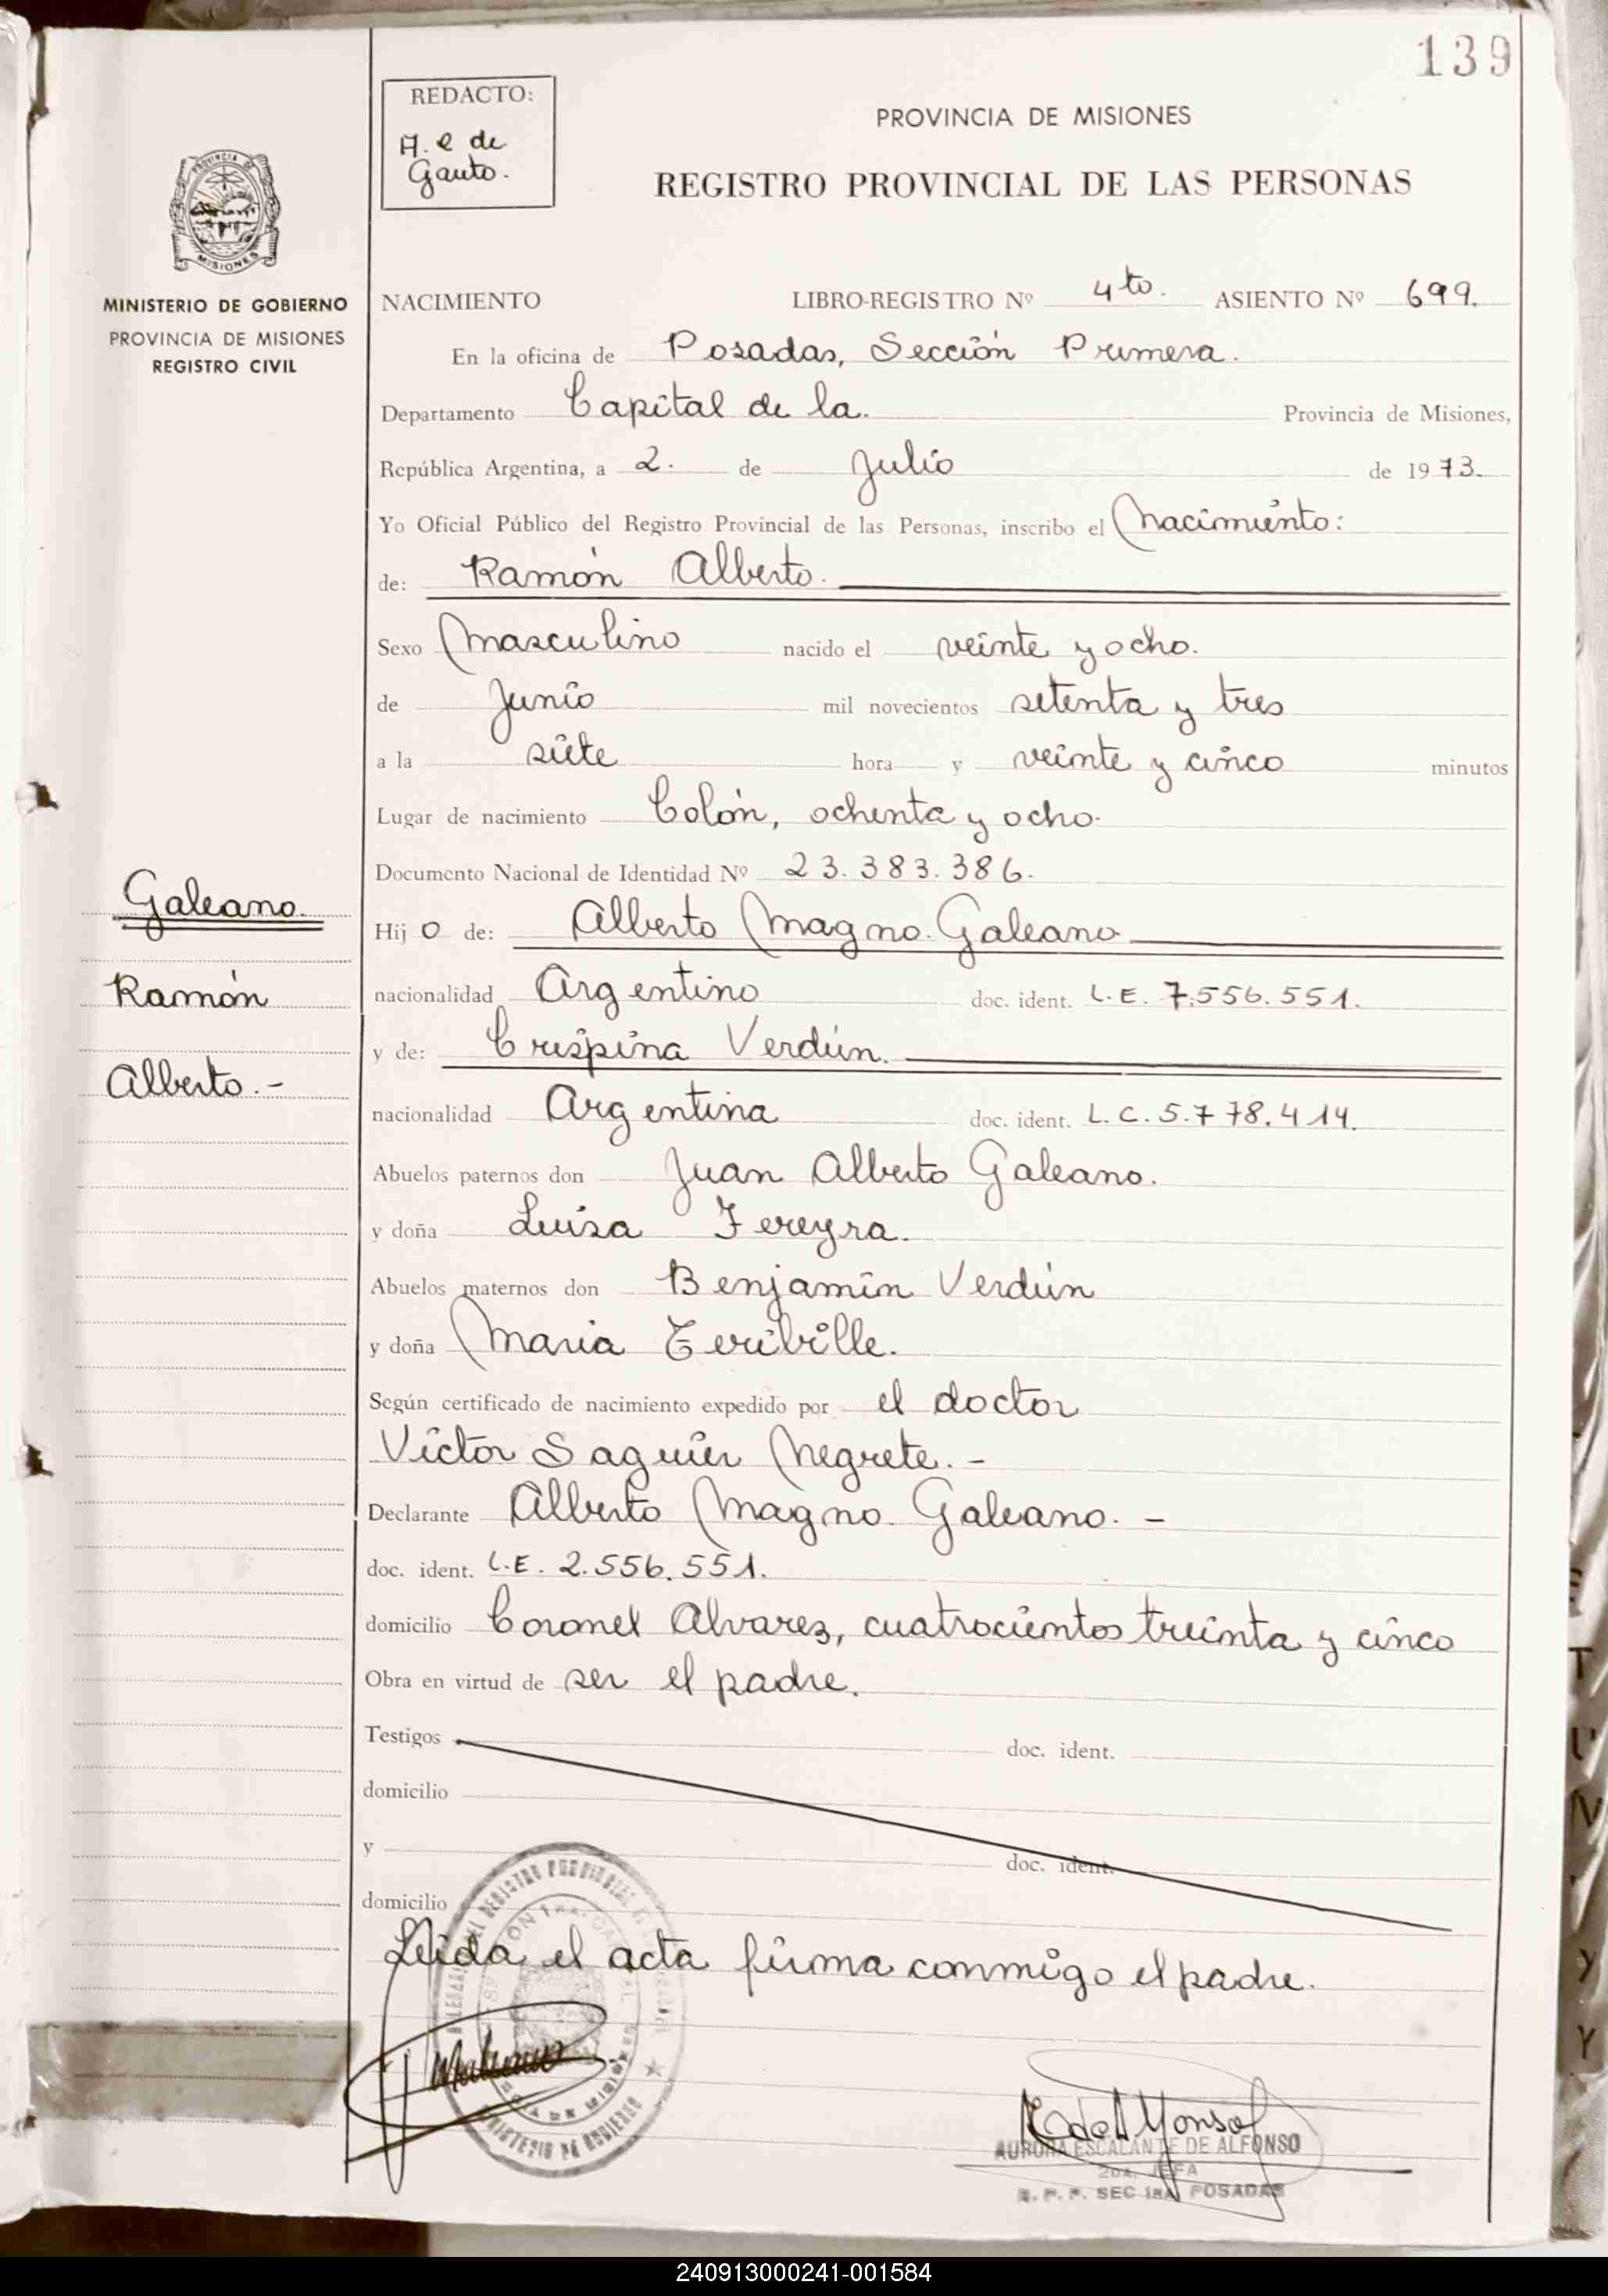 139
REDACTO:
A. E de
Gauto.
PROVINCIA DE MISIONES
REGISTRO PROVINCIAL DE LAS PERSONAS
PROVINCIA DE
MISIONES
MINISTERIO DE GOBIERNO
PROVINCIA DE MISIONES
REGISTRO CIVIL
NACIMIENTO LIBRO-REGISTRO Nº 4to. ASIENTO Nº 699.
En la oficina de Posadas, Sección Primera.
Departamento Capital de la. Provincia de Misiones,
República Argentina, a 2. de Julio de 1973.
Yo Oficial Público del Registro Provincial de las Personas, inscribo el Nacimiento:
de: Ramón Alberto.
Sexo Masculino nacido el veinte y ocho.
de Junio mil novecientos setenta y tres
a la siete hora y veinte y cinco minutos
Lugar de nacimiento Colón, ochenta y ocho.
Documento Nacional de Identidad Nº 23.383.386.
Galeano.
Ramón
Alberto.-
Hijo de: Alberto Magno Galeano
nacionalidad Argentino doc. ident. L.E. 7.556.551.
y de: Crispina Verdún.
nacionalidad Argentina doc. ident. L.C. 5.778.414.
Abuelos paternos don Juan Alberto Galeano.
y doña Luisa Fereyra.
Abuelos maternos don Benjamín Verdún
y doña Maria Teribille.
Según certificado de nacimiento expedido por el doctor
Víctor Saguier Negrete.-
Declarante Alberto Magno Galeano.-
doc. ident. L.E. 2.556.551.
domicilio Coronel Alvarez, cuatrocientos treinta y cinco
Obra en virtud de ser el padre.
Testigos doc. ident.
domicilio
y doc. ident.
domicilio
Leida el acta firma conmigo el padre.
AURORA ESCALANTE DE ALFONSO
2DA. JEFA
R. P. P. SEC 1RA POSADAS
240913000241-001584